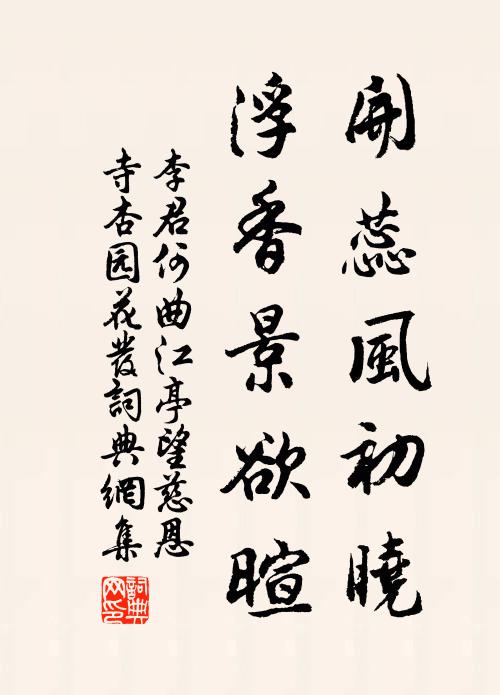 開蕊風初曉
浮香景欲暄
李君何曲江亭望慈恩
寺杏园花發詞典網集
詞典網印